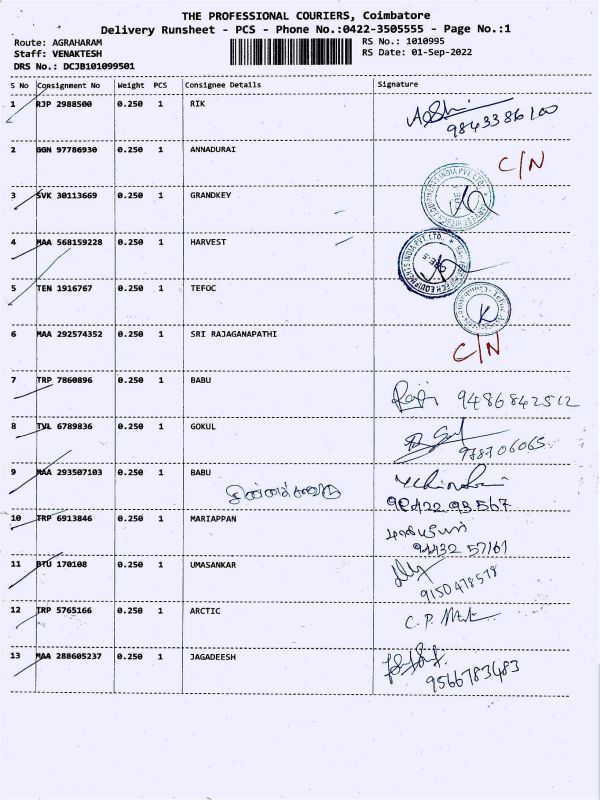 THE PROFESSIONAL COURIERS, Coimbatore
Delivery Runsheet - PCS - Phone No.:0422-3505555 - Page No.:1
Route: AGRAHARAM
Staff: VENAKTESH
DRS No.: DCJB101099501
RS No.: 1010995
RS Date: 01-Sep-2022
S No Consignment No Weight PCS Consignee Details Signature
1 RJP 2988500 0.250 1 RIK
9843386100
2 GGN 97786930 0.250 1 ANNADURAI C/N
3 SVK 30113669 0.250 1 GRANDKEY
4 MAA 568159228 0.250 1 HARVEST
5 TEN 1916767 0.250 1 TEFOC
6 MAA 292574352 0.250 1 SRI RAJAGANAPATHI C/N
7 TRP 7860896 0.250 1 BABU
9486842512
8 TVL 6789836 0.250 1 GOKUL
9 MAA 293507103 0.250 1 BABU
10 TRP 6913846 0.250 1 MARIAPPAN
94432 57161
11 BTU 170108 0.250 1 UMASANKAR
9150478578
12 TRP 5765166 0.250 1 ARCTIC
13 MAA 288605237 0.250 1 JAGADEESH
9566783483